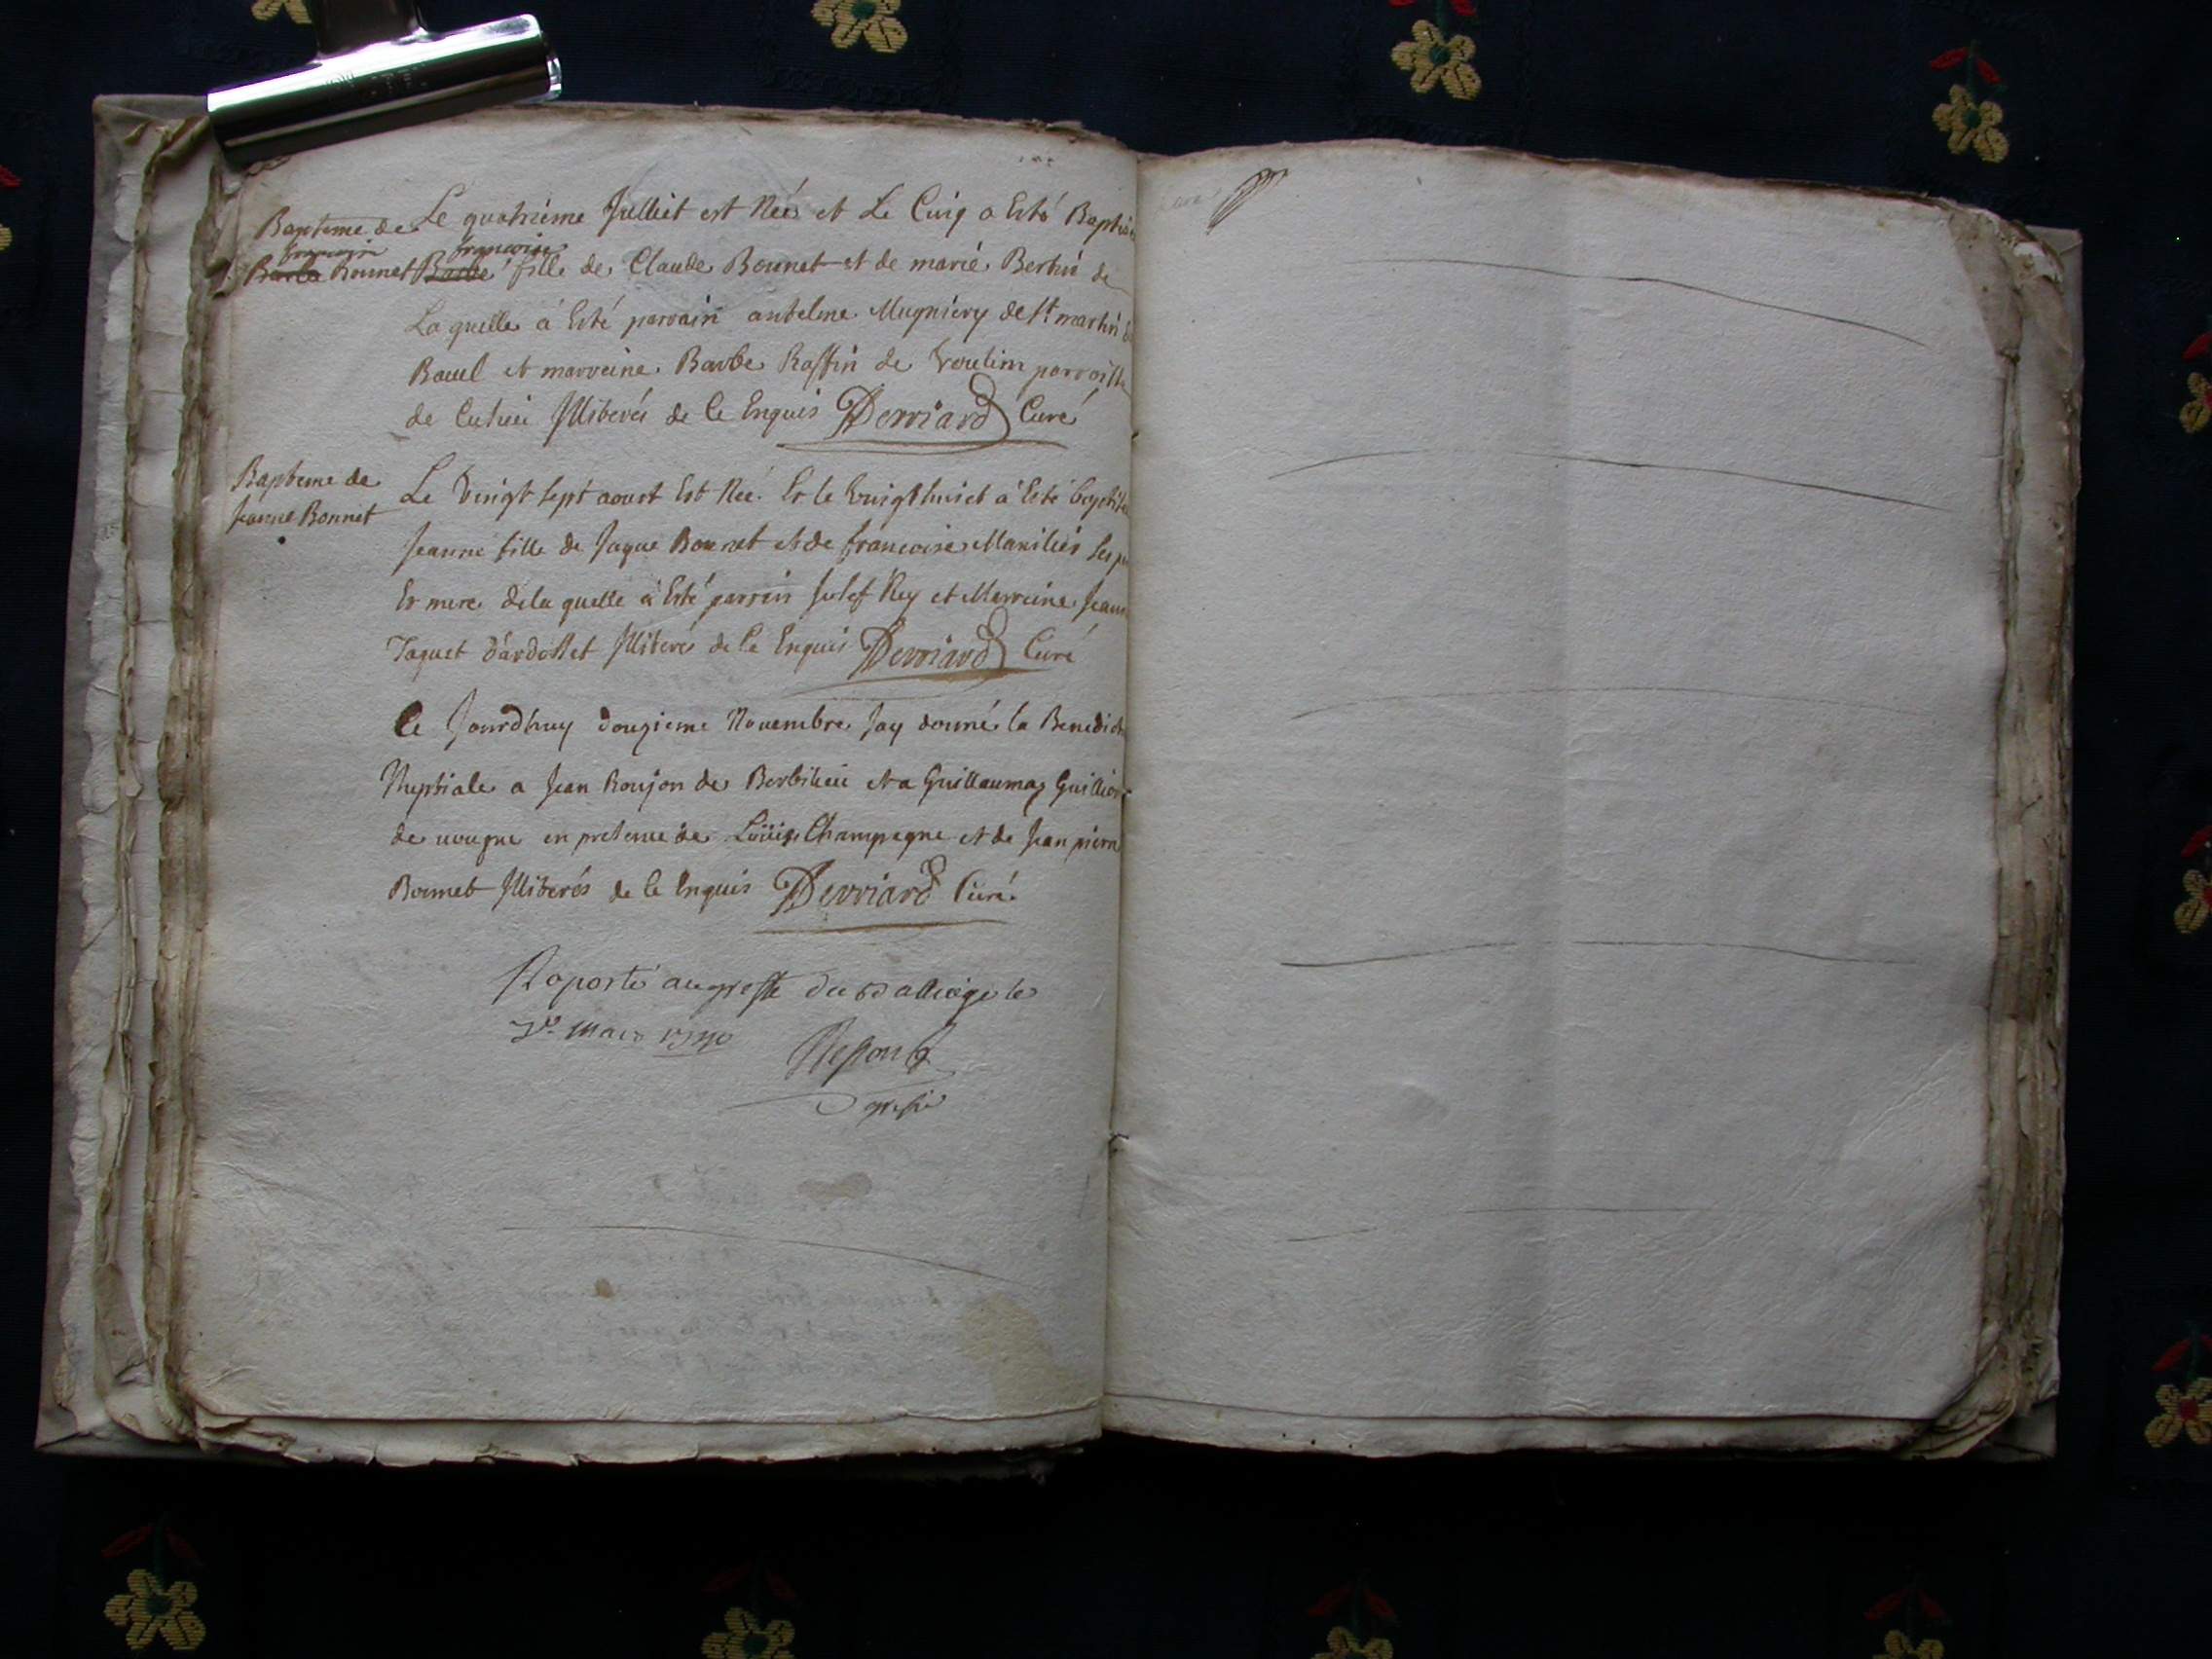 Bapteme de
francoise
Barbe Bonnet
Le quatrième Julliet est Née et Le Cinq a Esté Baptisé
francoise
Barbe fille de Claude Bonnet et de marie Bertin de
La quelle à Esté parrain antelme Mugniery de St martin
Bauel et marraine Barbe Raffin de parroisse
de Illiterés de Ce Enquis Derriard Curé
Bapteme de
Jeanne Bonnet
Le Vingt sept aoust Est Née. Et le Vingt huict à Esté
Jeanne fille de Jaque Bonnet et de francoise
Et mere dela quelle à Esté parrein Josef Rey et Marreine Jeanne
Jaquet d'ardosset Illiterés de Ce Enquis Derriard Curé
Ce Jourdhuy douzieme Nouembre Jay donné la Benedict
Nuptiale a Jean Roujon de Berbilieu et a Guillaumaz
de en presence de Loüis Champagne et de Jean pierre
Bonnet Illiterés de Ce Enquis Derriard Curé
Raporté au greffe du Balliage le
Mars